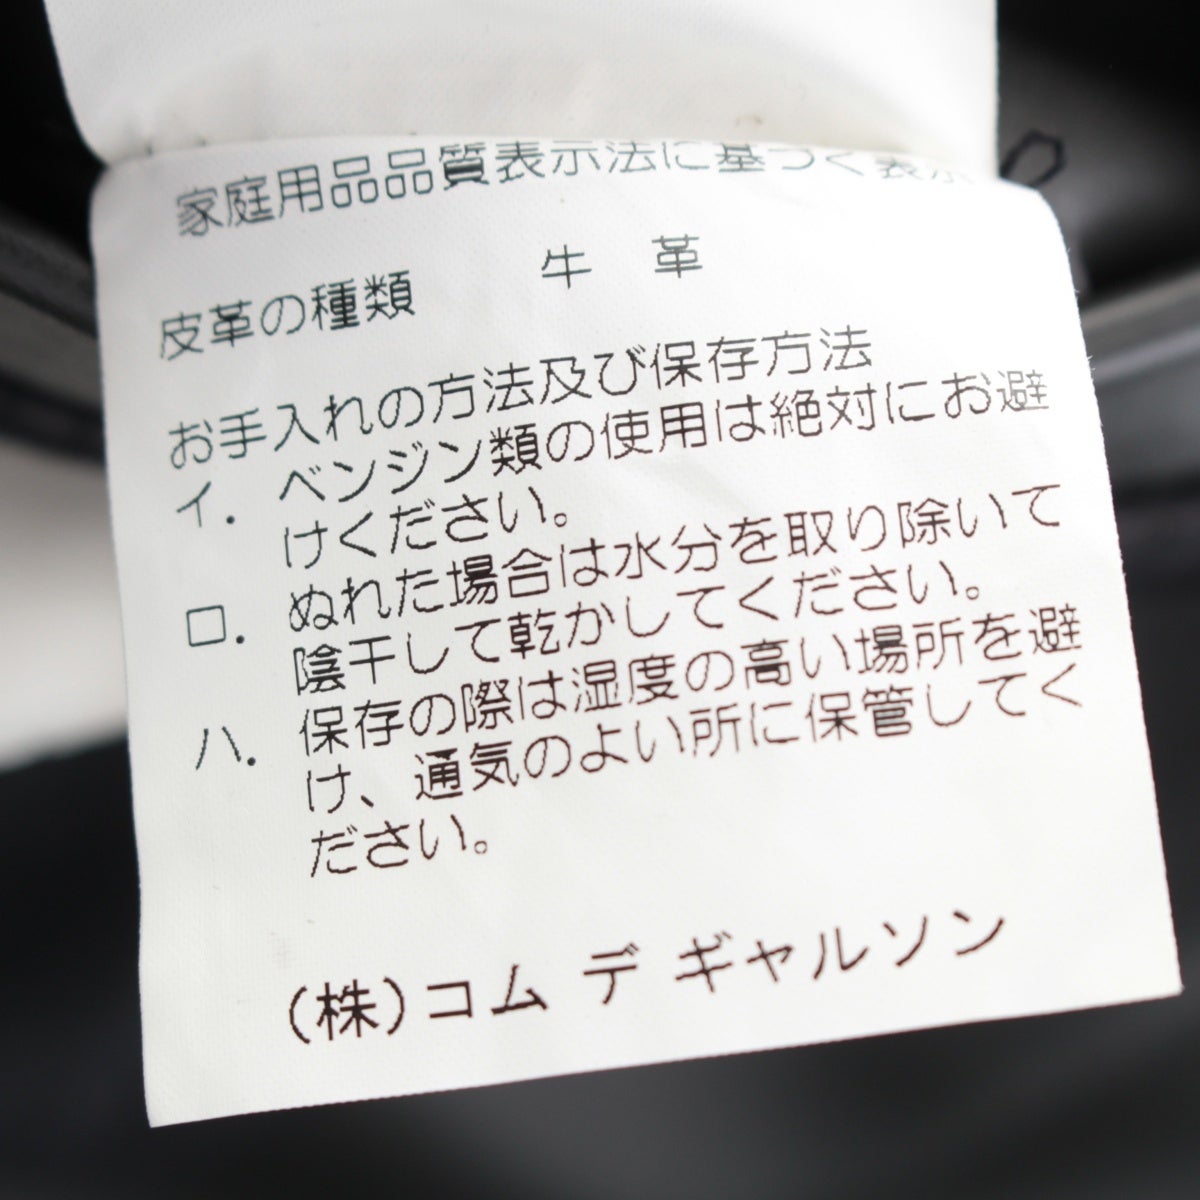 家庭用品品質表示法に基づく表示
皮革の種類　牛　革
お手入れの方法及び保存方法
イ.　ベンジン類の使用は絶対にお避
けください。
ロ.　ぬれた場合は水分を取り除いて
陰干して乾かしてください。
ハ.　保存の際は湿度の高い場所を避
け、通気のよい所に保管してく
ださい。
(株)コム デ ギャルソン